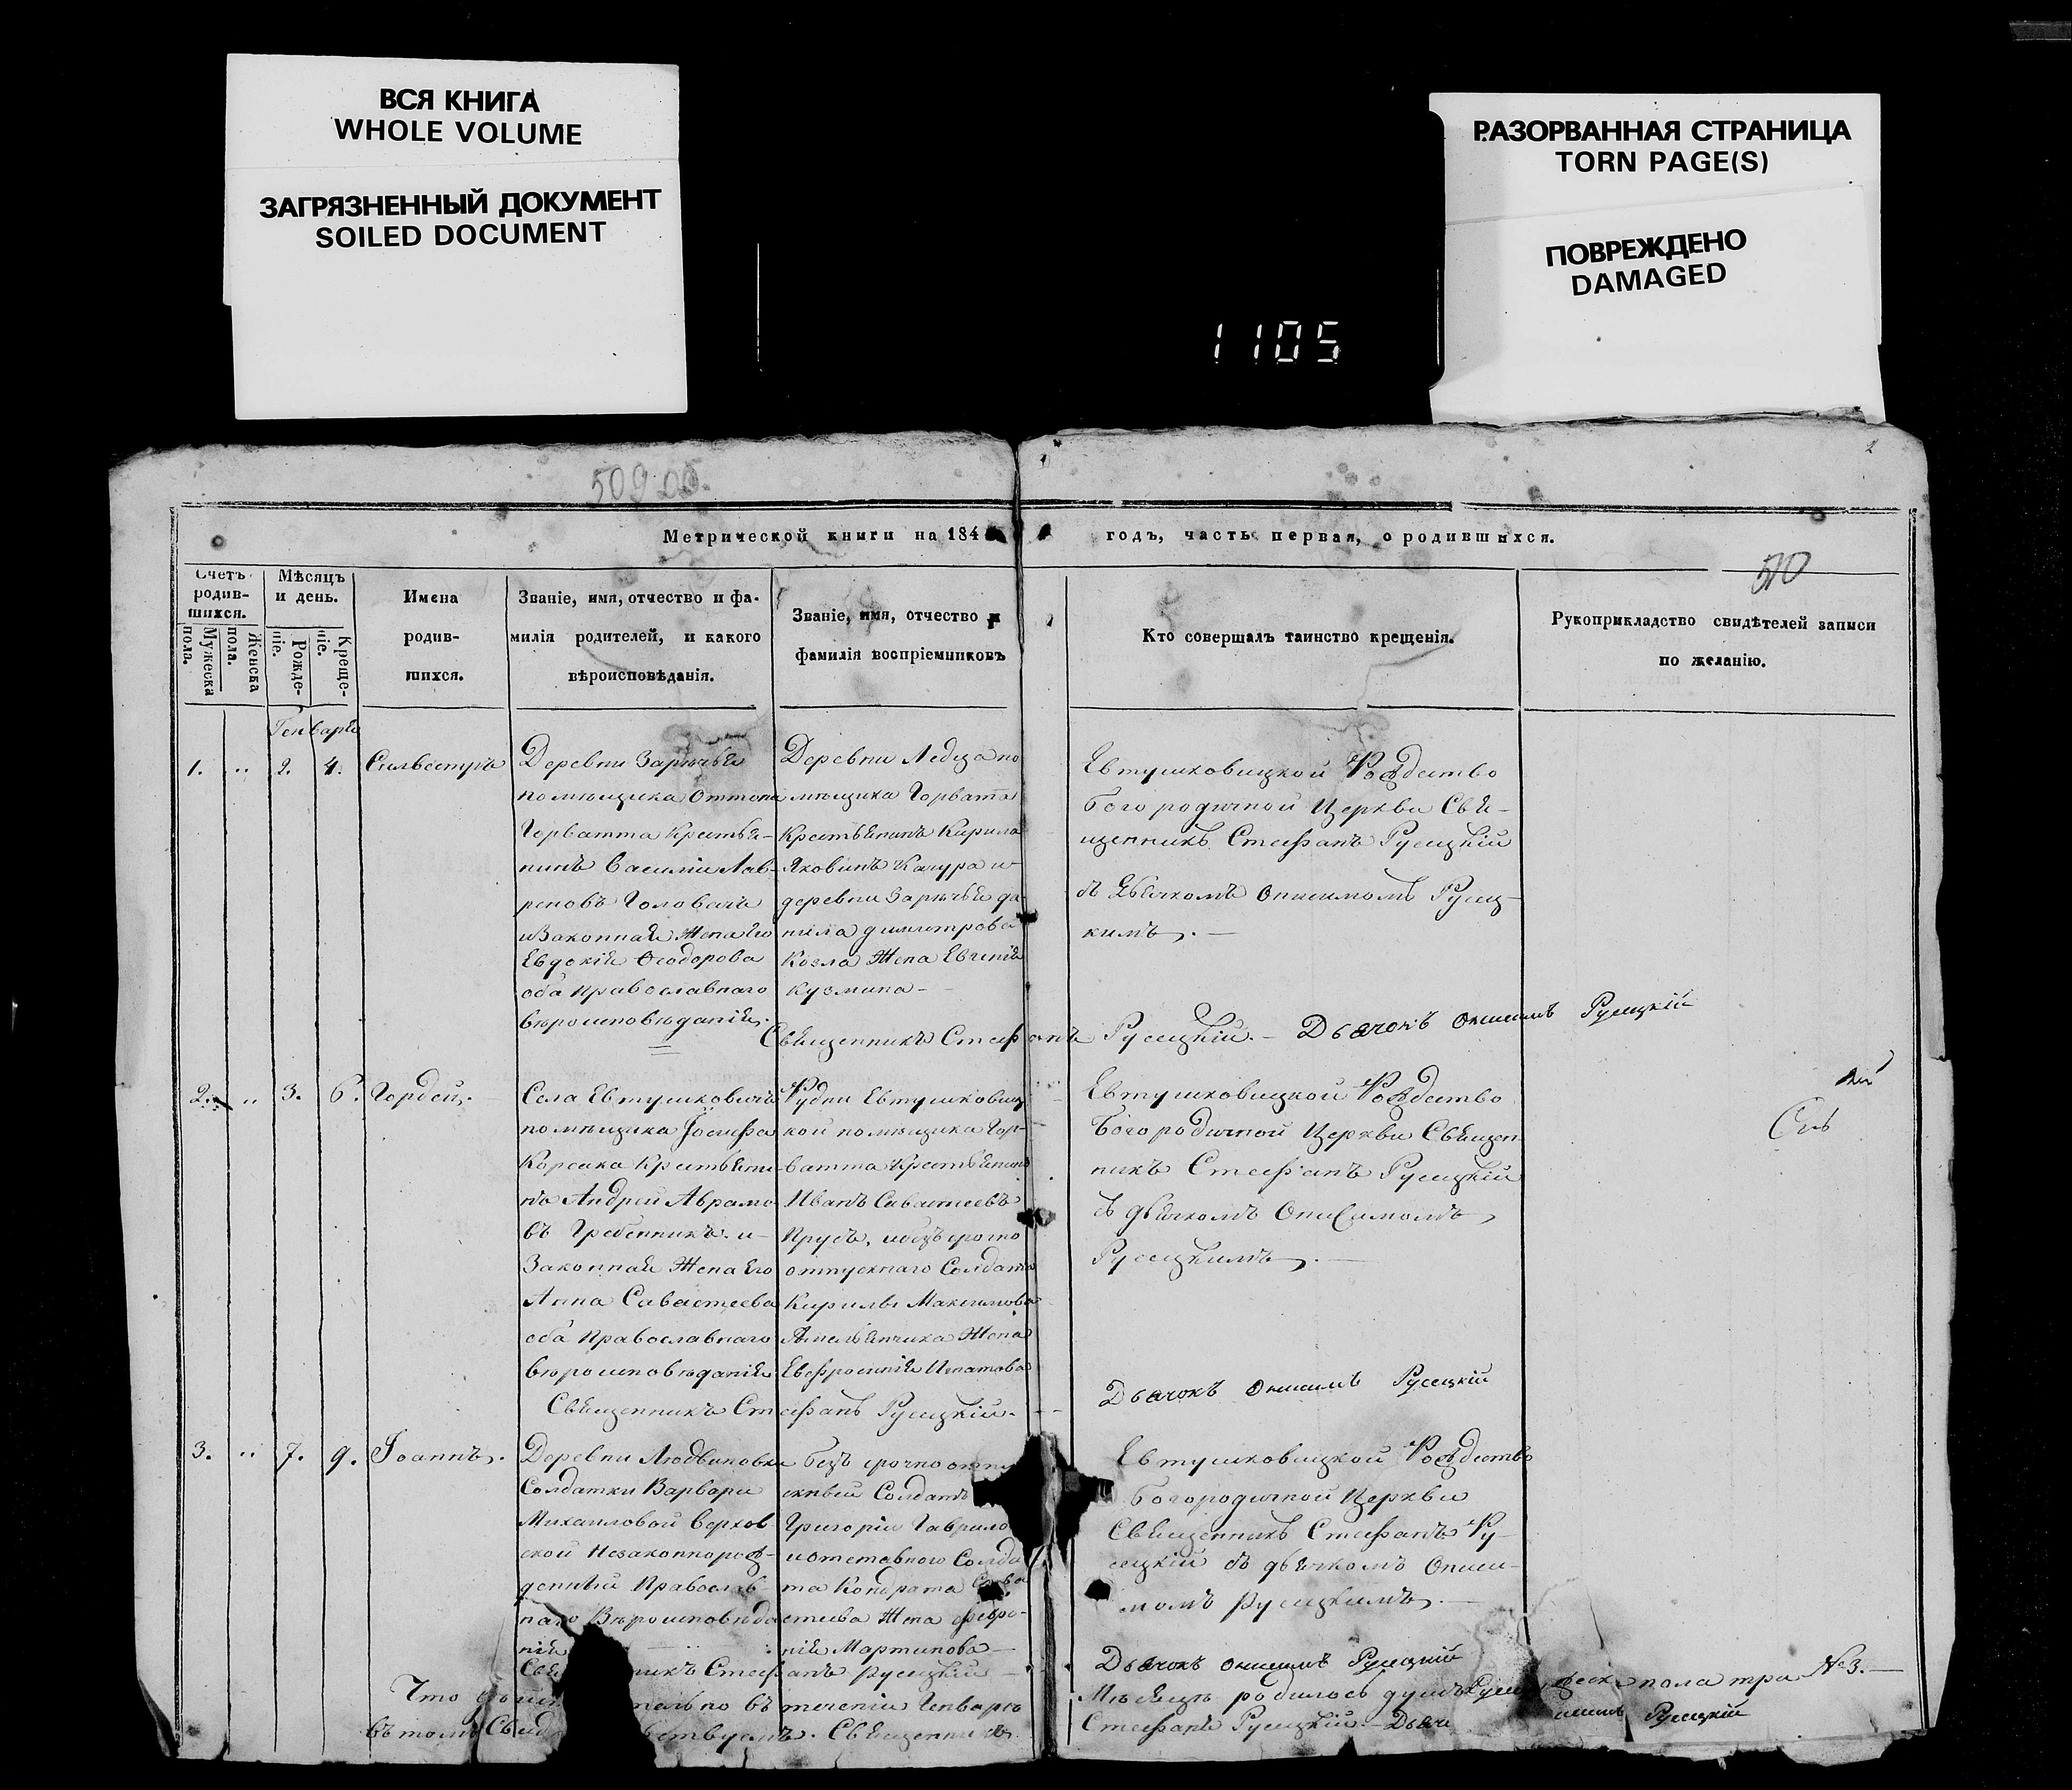 ВСЯ КНИГА
WHOLE VOLUME
ЗАГРЯЗНЕННЫЙ ДОКУМЕНТ
SOILED DOCUMENT
РАЗОРВАННАЯ СТРАНИЦА
TORN PAGE(S)
ПОВРЕЖДЕНО
DAMAGED
1105
2
509
Метрической книги на 184
годъ, часть первая, о родившихся.
510
Счетъ родив-шихся.
Мужеска пола.
Женска пола.
Мѣсяцъ и день.
Рожде-ніе.
Креще-ніе.
Имена
родив-
шихся.
Званіе, имя, отчество и фа-
милія родителей, и какого
вѣроисповѣданія.
Званіе, имя, отчество и
фамилія воспріемниковъ
Кто совершалъ таинство крещенія.
Рукоприкладство свидѣтелей записи
по желанію.
Генваря
1. .. 2. 4. Сильвестръ
Деревни Зарѣчья
помѣщика Оттона
Горватта Крестья-
нинъ Василій Лав-
реновъ Головачь
и Законная Жена Его
Евдокія Ѳеодорова
оба Православнаго
вѣроисповѣданія.
Деревни Ледца по
мѣщика Горвата
Крестьянинъ Кирила
Яковинъ Качура и
деревни Зарѣчья да
нила димитрова
Козла Жена Евгенія
Кузмина
Евтушковицкой Рождество
Богородичной Церкви Свя-
щенникъ Стефанъ Русецкій
съ Дьячкомъ Онисимомъ Русец-
кимъ.
Священникъ Стефанъ Русецкій. Дьячокъ Онисимъ Русецкій
2. .. 3. 6. Гордей.
Села Евтушковичь
помѣщика Іосифа
Корсака Крестьяни-
нъ Андрей Авраамо
въ Гребенникъ и
Законная Жена Его
Анна Савастеева
оба Православнаго
вѣроисповѣданія
Рудни Евтушковиц
кой помѣщика Гор-
ватта Крестьянинъ
Иванъ Савастеевъ
Прусъ, и безъ срочно
отпускнаго Солдата
Кирилы Максимова
Амельянчика Жена
Евфросинія Игнатова
Евтушковицкой Рождество
Богородичной Церкви Священ
никъ Стефанъ Русецкій
съ дьячкомъ Онисимомъ
Русецкимъ.
Священникъ Стефанъ Русецкій.
Дьячокъ Онисимъ Русецкій
3. .. 7. 9. Іоаннъ.
Деревни Людвиновки
Солдатки Варвары
Михаиловой Верхов
ской Незаконнорож-
денный Православ
наго Вѣроисповѣда
нія
безъ срочно отпу
скный Солдатъ
Григорій Гаврило
и отставного Солда
та Кондрата
Жена Февро-
нія Мартинова
Евтушковицкой Рождество
Богородичной Церкви
Священникъ Стефанъ Ру-
сецкій съ дьячкомъ Ониси-
момъ Русецкимъ.
Стефанъ Русецкій
Дьячокъ Онисимъ Русецкій
Что въ теченіи Генваря Мѣсяцѣ родилось душъ пола три №3.
въ томъ Священникъ Стефанъ Русецкій. Русецкій